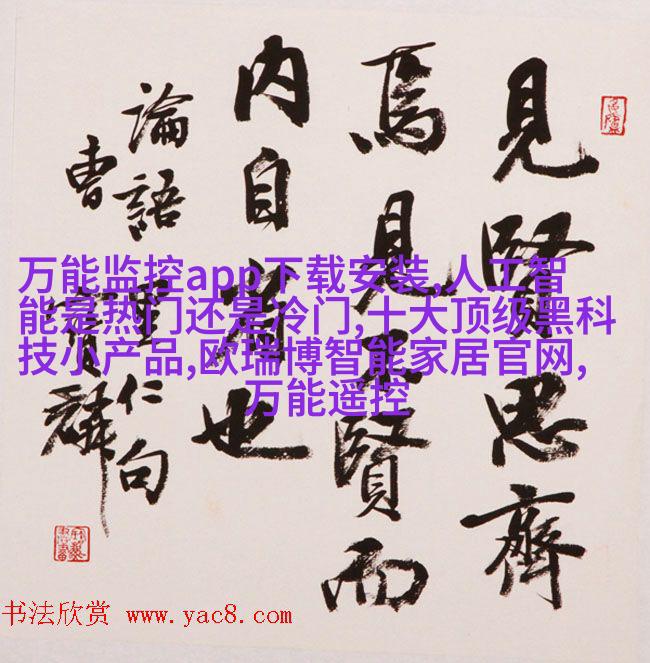 見賢思齊
焉見不賢而
內自省也
論語里仁句
曹寶麟
万能监控app下载安装,人工智
能是热门还是冷门,十大顶级黑科
技小产品,欧瑞博智能家居官网,
万能遥控
书法欣赏 www.yac8.com